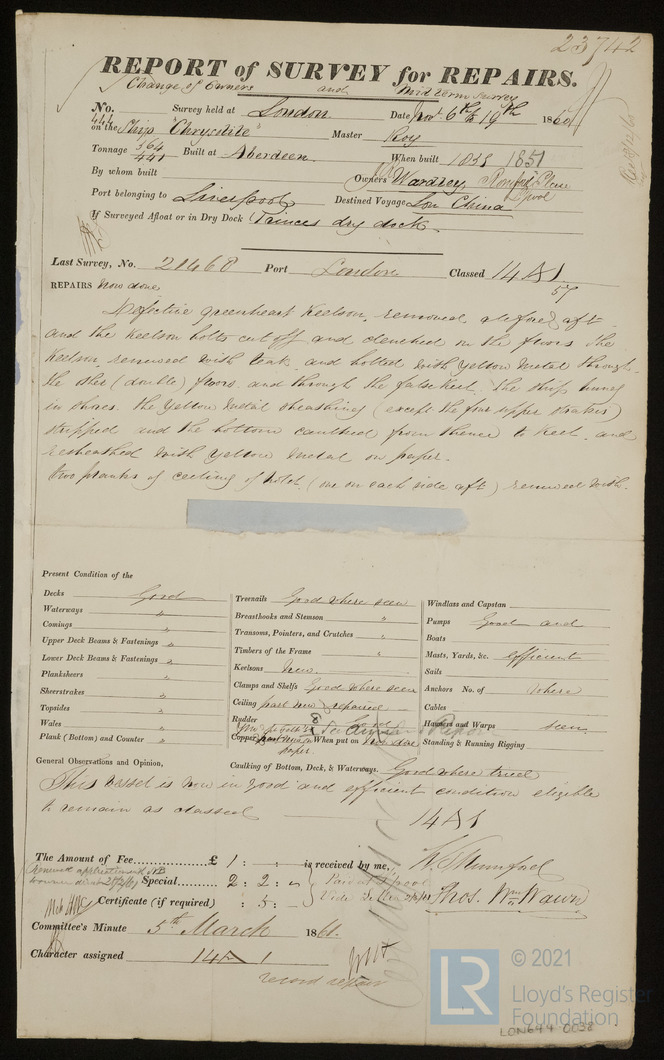 23742
REPORT of SURVEY for REPAIRS.
Change of Owners and Mid term Survey
No. Survey held at London Date Nov 6th to 19th 1860
444 on the Ship "Chrysolite" Master Roy
Tonnage 564 / 441 Built at Aberdeen When built 1851
By whom built Owners Wardley
Port belonging to Liverpool Destined Voyage Lon China
If Surveyed Afloat or in Dry Dock Princes dry dock.
Last Survey, No. 20460 Port London Classed 14 A 1
57
REPAIRS Now done,
Defective greenheart Keelson, removed, afore & aft
and the Keelson bolts cut off and clenched on the floors the
Keelson renewed with teak and bolted with yellow metal through
the other (double) floors and through the false keel. The ship hung
in shores. the yellow metal sheathing (except the four upper strakes)
stripped and the bottom caulked from thence to keel, and
resheathed with yellow metal on paper.
two planks of ceiling of hold, (one on each side aft) renewed with
Present Condition of the
Decks Good
Waterways "
Comings "
Upper Deck Beams & Fastenings "
Lower Deck Beams & Fastenings "
Planksheers "
Sheerstrakes "
Topsides "
Wales "
Plank (Bottom) and Counter "
Treenails Good where seen
Breasthooks and Stemson "
Transoms, Pointers, and Crutches "
Timbers of the Frame "
Keelsons New
Clamps and Shelfs Good where seen
Ceiling part new & repaired
Rudder good
Copper When put on Now done
paper.
Caulking of Bottom, Deck, & Waterways. Good where tried
Windlass and Capstan
Pumps Good and
Boats
Masts, Yards, &c. efficient
Sails
Anchors No. of where
Cables
Hawsers and Warps seen
Standing & Running Rigging
General Observations and Opinion,
This vessel is now in good and efficient condition eligible
to remain as classed 14 A 1
The Amount of Fee £ 1 : : is received by me,
Special 2 : 2 : "
Certificate (if required) : 5 :
W. Mumford
Thos. Wm Wawn
Committee's Minute 5th March 1861.
Character assigned 14 A 1
record repair
LR
© 2021
Lloyd's Register
Foundation
LON644-0038